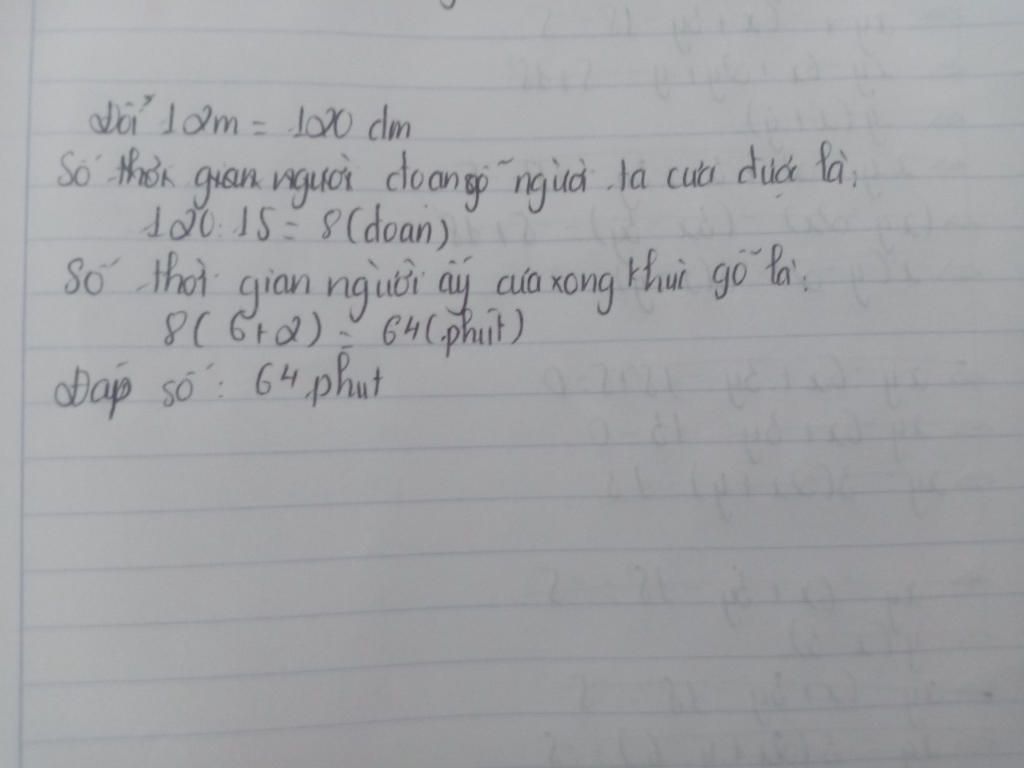 Đổi 12m = 120 dm
Số thời gian người đoạn gỗ người ta cưa được là:
120:15 = 8 (đoạn)
Số thời gian người ấy cưa xong khúc gỗ là:
8 (6+2) = 64 (phút)
Đáp số: 64 phút